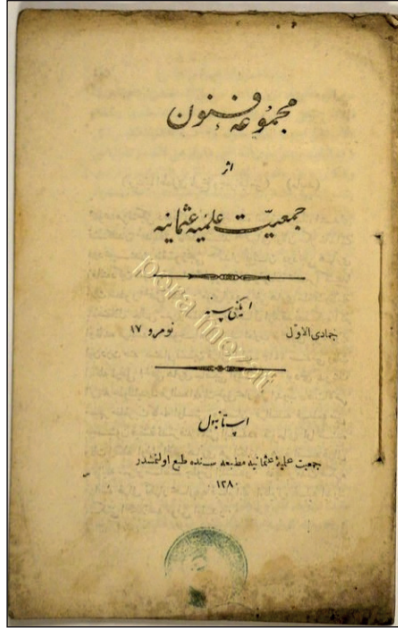 مجموعهٔ فنون
از
جمعیت علمیهٔ عثمانیه
ایکنجی سنه
جمادی الاول نومرو ١٧
استانبول
جمعیت علمیهٔ عثمانیه مطبعه سنده طبع اولنمشدر
١٢٨٠
pera mezat